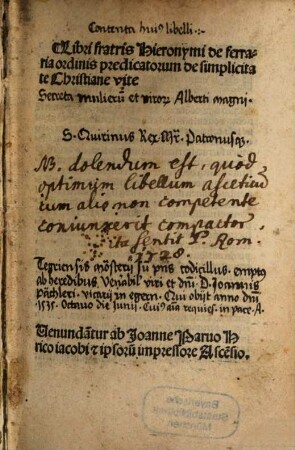 Contenta hui⁹ libelli
Libri fratris Hieronymi de ferra
ria ordinis predicatorum de simplicita
te Christiane vite
Secreta mulierū et viror̄ Alberti magni.
S. Quirinus Rex Mr̄. Patronusq̃.
NB. dolendum est, quod
optimum libellum asceticū
cum alio non competente
coniunxerit compactor
ita sentit P. Rom.
1728
Tegriensis mōsterij sū p̄ns codicillus. empt⁹
ab heredibus Venabil' viri et dnī D. Joannis
Pächleri. vicarij in egern. Qui obijt anno dnī
1535. Octavo die Junij. Cui⁹ aīa requies. in pace. A.
Venundātur ab Joanne Paruo H
rico iacobi ⁊ ipsorū impressore Ascēsio.
Bayerische
Staatsbibliothek
München